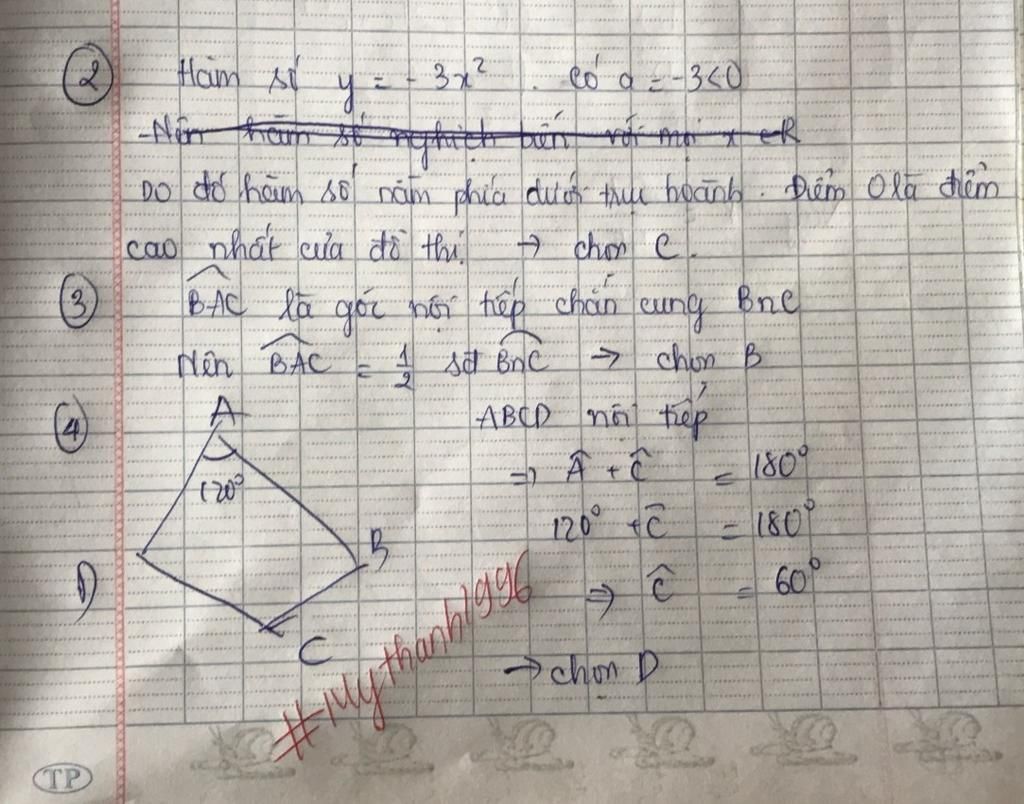 2 Hàm số y = - 3x² . có a = -3<0
-Nên hàm số nghịch biến với mọi x ∈ R
Do đó hàm số nằm phía dưới trục hoành. Điểm O là điểm
cao nhất của đồ thị → chọn C.
3 \widehat{BAC} là góc nội tiếp chắn cung BnC
Nên \widehat{BAC} = 1/2 sđ \widehat{BnC} → chọn B
4 A ABCD nội tiếp
120° => Â + Ĉ = 180°
120° + Ĉ = 180°
D B => Ĉ = 60°
C
→ chọn D
#Mythanh1996
TP